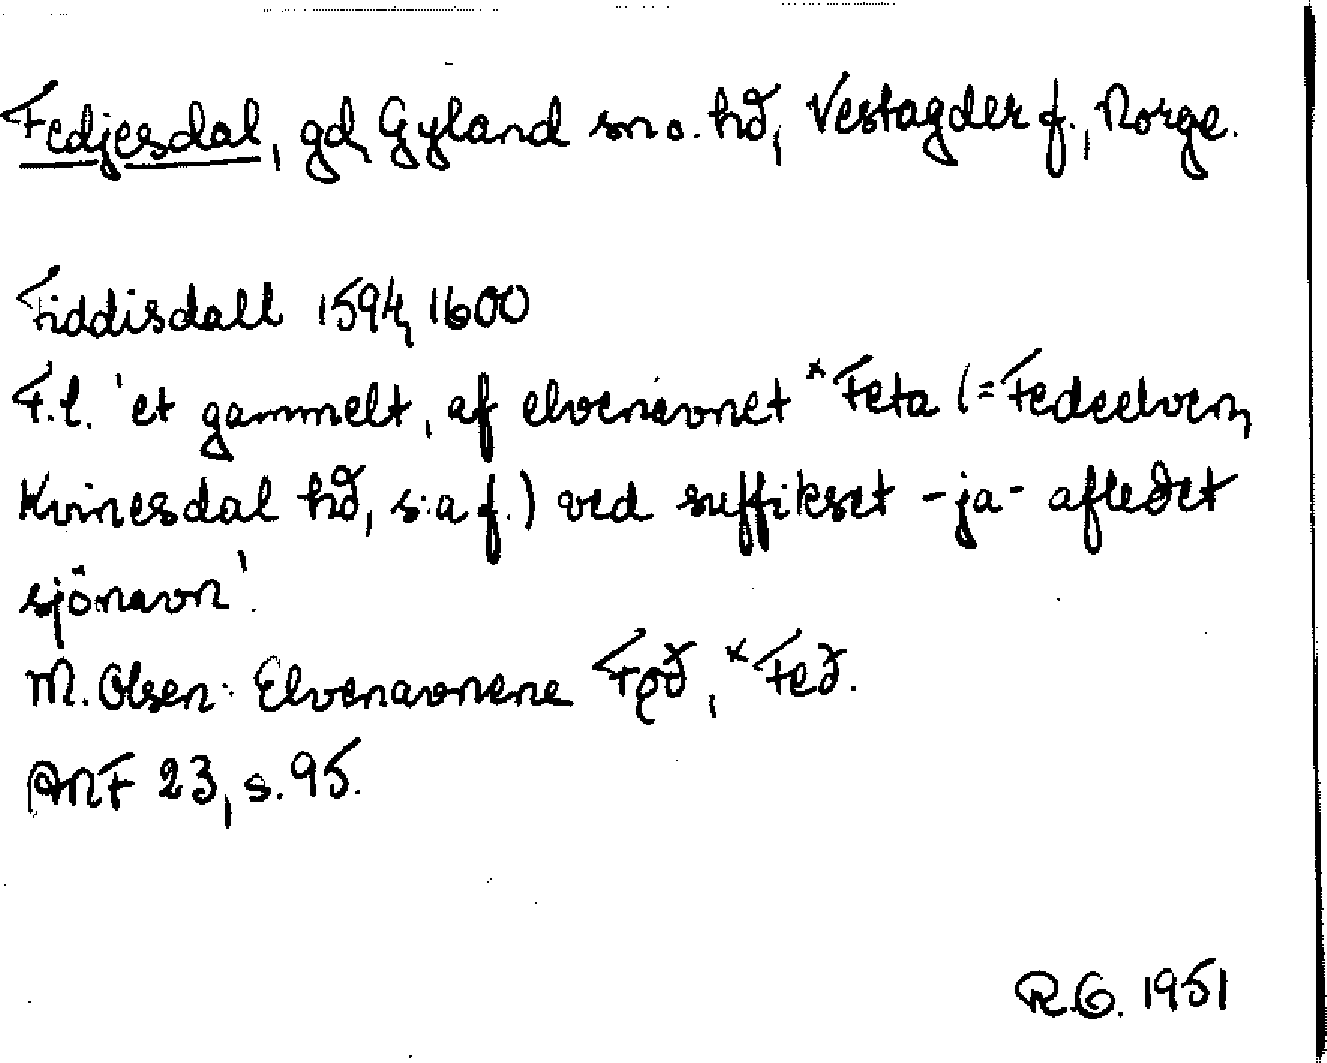 Fedjesdal, gd, Gyland sn o. hd, Vestagder f., Norge.
Fiddisdall 1594, 1600
F.l. 'et gammelt, af elvenavnet *Feta (= Fedeelven,
Kvinesdal hd, s:a f.) ved suffikset -ja- afledet
sjönavn'.
M. Olsen: Elvenavnene Fǫð, *Feð.
ANF 23, s. 95.
R.G. 1951